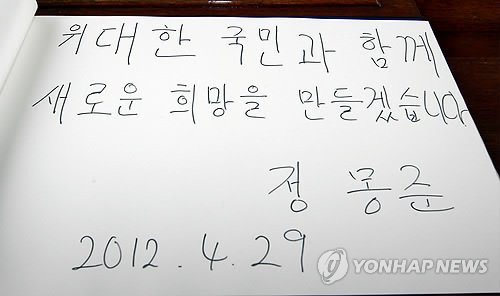 위대한 국민과 함께
새로운 희망을 만들겠습니다
정 몽준
2012. 4. 29
YONHAP NEWS